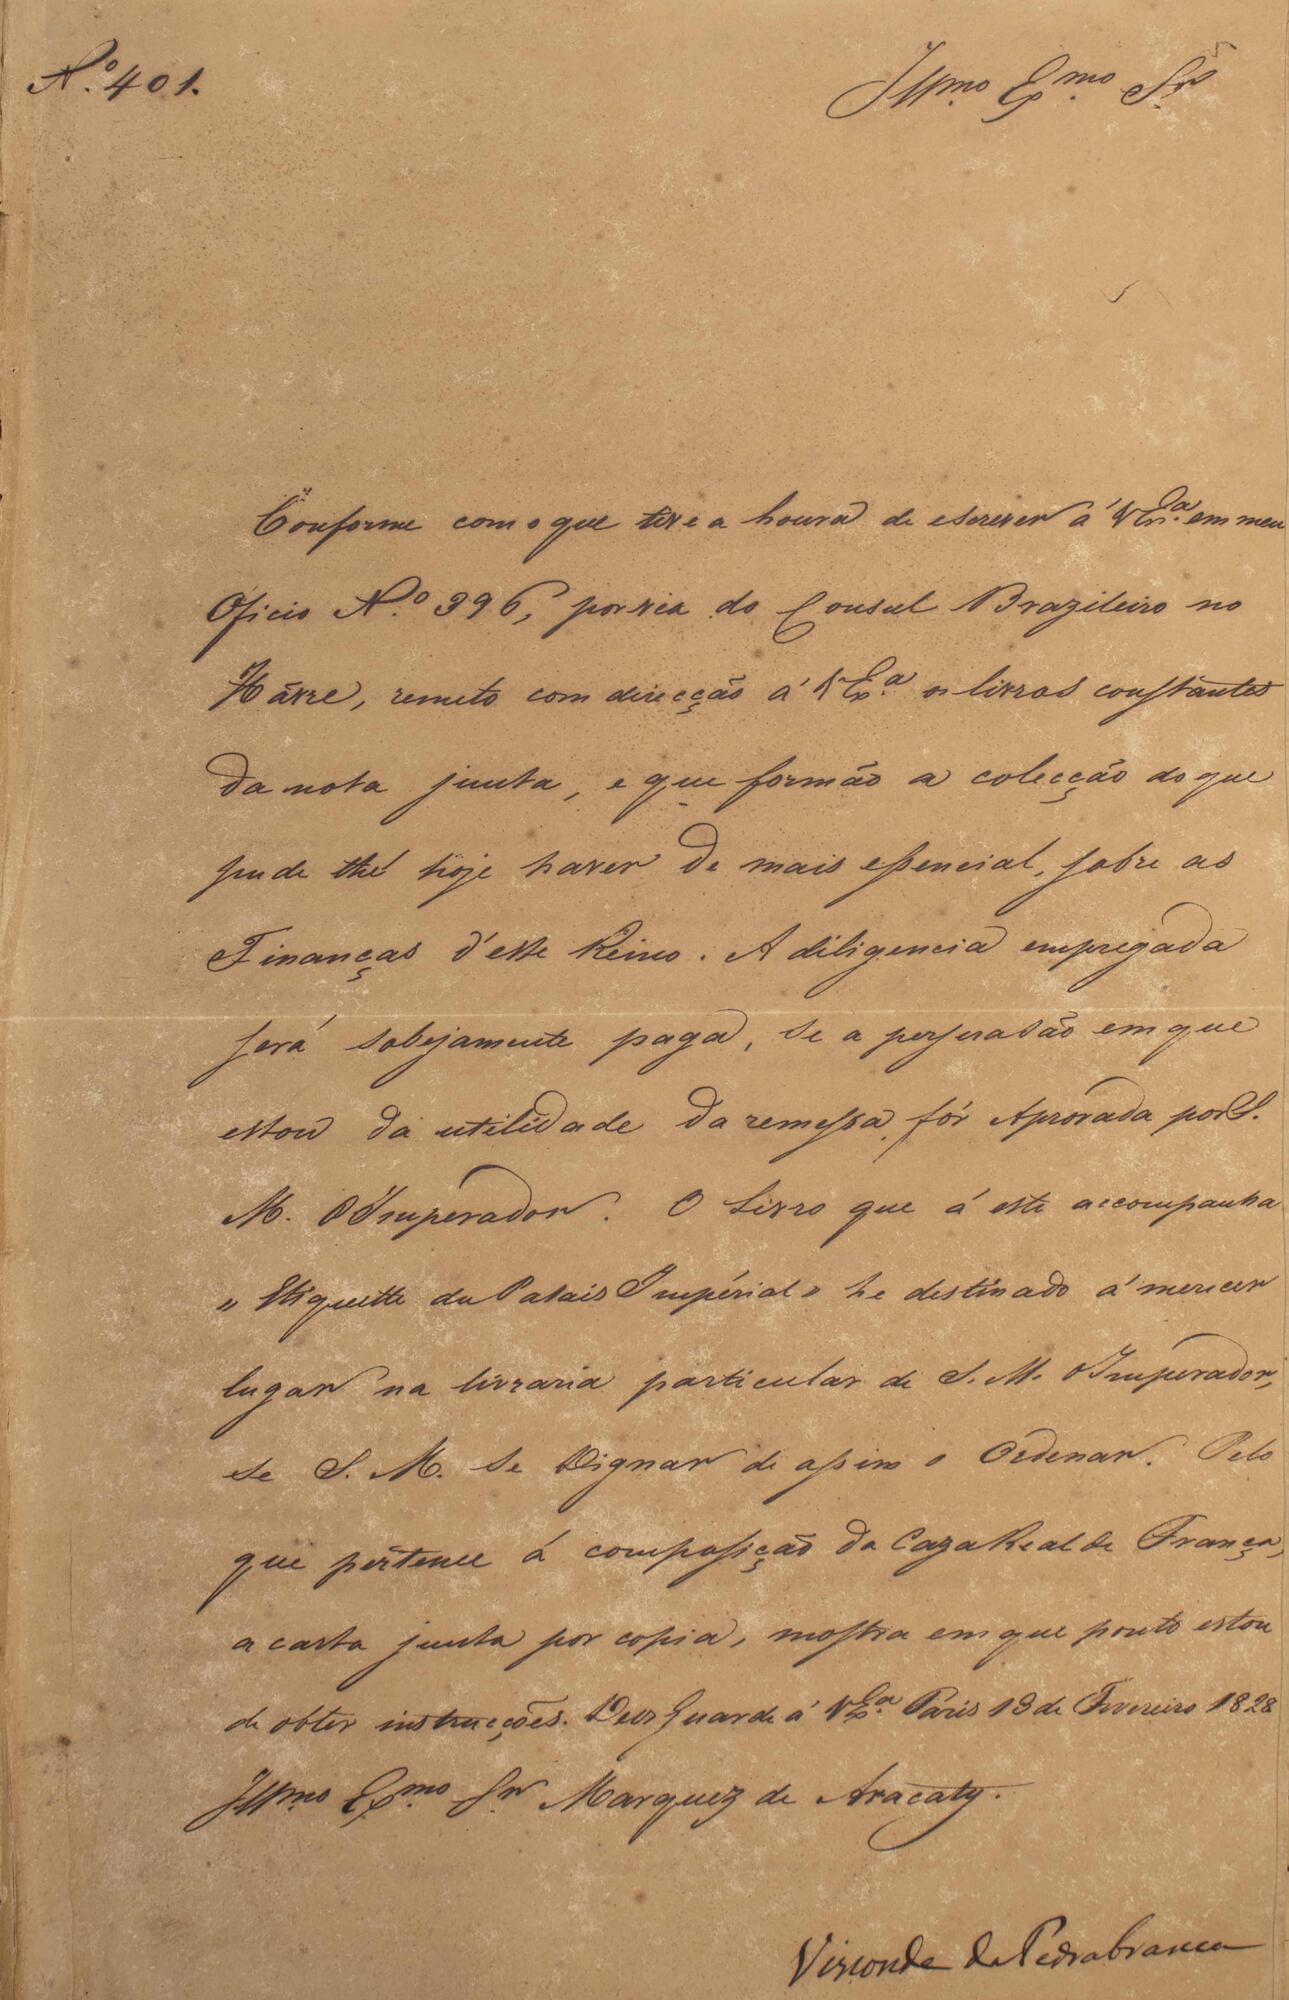 N.º 401.
Illmo. Exmo. Snr.
Conforme com o que tive a honra de escrever á V Exa. em meu
Oficio N.º 396, por via do Consul Brazileiro no
Hâvre, remeto com direcção á V Exa. os livros constantes
da nota junta, e que formão a colecção do que
pude thé hoje haver de mais essencial, sobre as
Finanças d'este Reino. A diligencia empregada
será sobejamente paga, se a persuasão em que
estou da utilidade da remessa, fôr Aprovada por S.
M. O Imperador. O Livro que á este accompanha
" Etiquette du Palais Impérial " he destinado á merecer
lugar na livraria particular de S. M. O Imperador,
se S. M. se Dignar de assim o Ordenar. Pelo
que pertence á composição da Caza Real de França,
a carta junta por copia, mostra em que ponto estou
de obter instrucções. Deos Guarde á V Exa. Paris 13 de Fevereiro 1828
Illmo. Exmo. Snr. Marquez de Aracaty.
Visconde da Pedrabranca